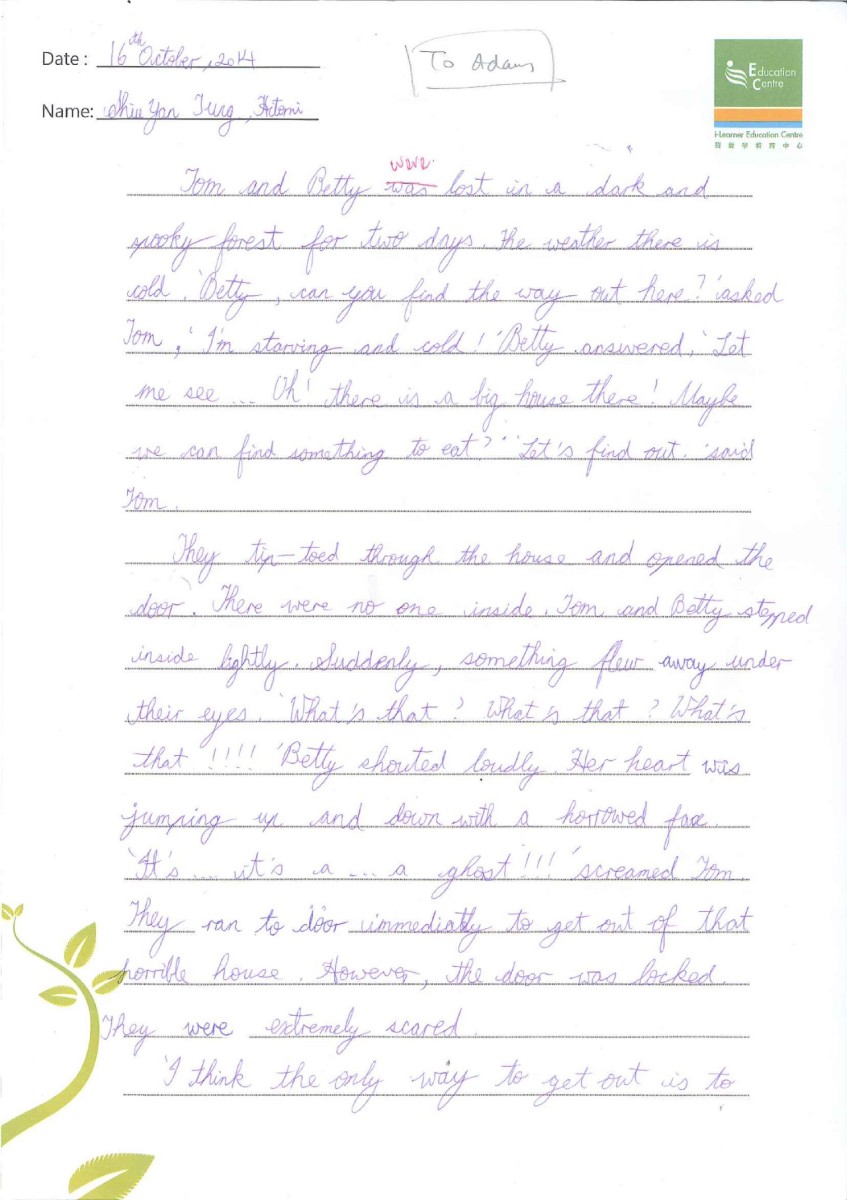 Date : 16th October, 2014
To Adam
Education
Centre
Name: Shiu Yan Tung, Hitomi
i-Learner Education Centre
were
Tom and Betty was lost in a dark and
spooky forest for two days. The weather there is
cold. 'Betty, can you find the way out here?' asked
Tom, 'I'm starving and cold!' Betty answered, 'Let
me see ... Oh! there is a big house there! Maybe
we can find something to eat?' 'Let's find out.' said
Tom.
They tip-toed through the house and opened the
door. There were no one inside. Tom and Betty stepped
inside lightly. Suddenly, something flew away under
their eyes. 'What's that? What's that? What's
that !!!!' Betty shouted loudly. Her heart was
jumping up and down with a horrowed face.
'It's ... it's a ... a ghost!!!' screamed Tom.
They ran to door immediatly to get out of that
horrible house. However, the door was locked.
They were extremely scared.
'I think the only way to get out is to